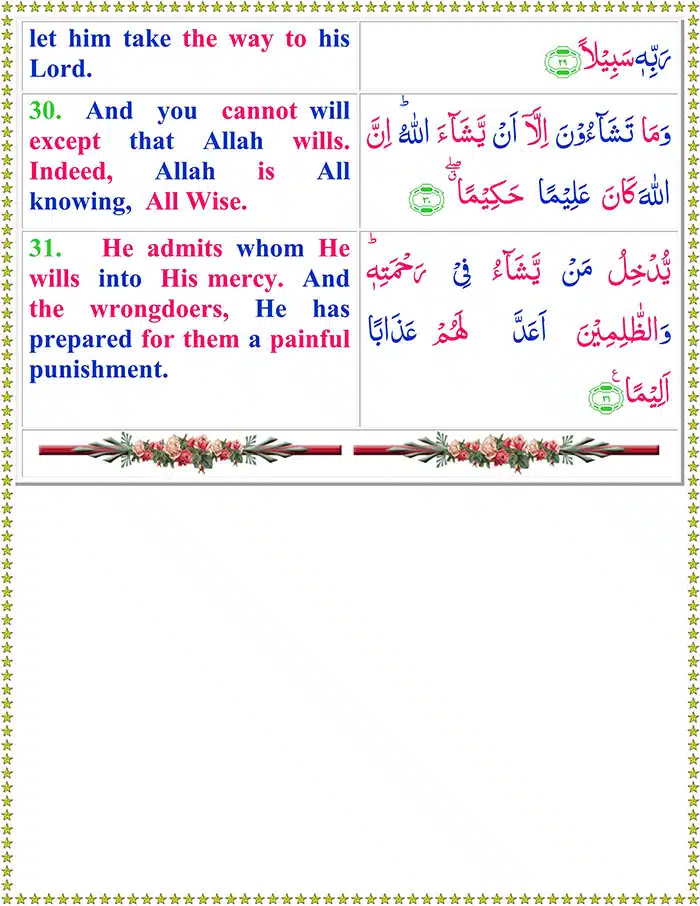 let him take the way to his
Lord.
رَبِّهٖ سَبِيْلًا ﴿۲۹﴾
30. And you cannot will
except that Allah wills.
Indeed, Allah is All
knowing, All Wise.
وَمَا تَشَآءُوْنَ اِلَّآ اَنْ يَّشَآءَ اللّٰهُ ؕ اِنَّ
اللّٰهَ كَانَ عَلِيْمًا حَكِيْمًا ۖۗ ﴿۳۰﴾
31. He admits whom He
wills into His mercy. And
the wrongdoers, He has
prepared for them a painful
punishment.
يُّدْخِلُ مَنْ يَّشَآءُ فِىْ رَحْمَتِهٖ ؕ
وَالظّٰلِمِيْنَ اَعَدَّ لَهُمْ عَذَابًا
اَلِيْمًا ۧ ﴿۳۱﴾